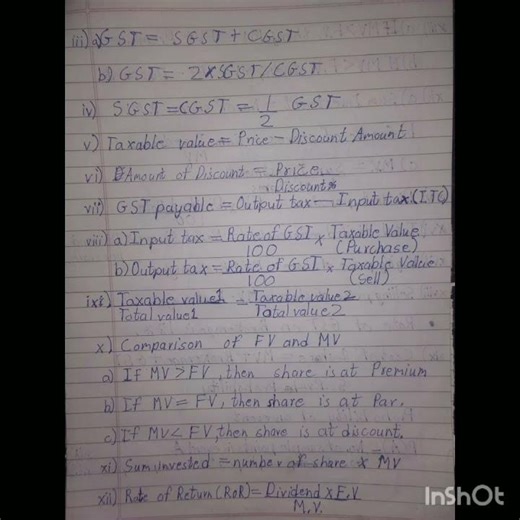 iii) a) GST = SGST + CGST
b) GST = 2 x SGST / CGST
iv) SGST = CGST = 1/2 GST
v) Taxable value = Price - Discount Amount
vi) Amount of Discount = Price / Discount%
vii) GST payable = Output tax - Input tax (ITC)
viii) a) Input tax = Rate of GST / 100 x Taxable Value (Purchase)
b) Output tax = Rate of GST / 100 x Taxable Value (Sell)
ix) Taxable value1 / Total value1 = Taxable value2 / Total value2
x) Comparison of FV and MV
a) If MV > FV, then share is at Premium
b) If MV = FV, then share is at Par.
c) If MV < FV, then share is at discount.
xi) Sum invested = number of share x MV
xii) Rate of Return (RoR) = Dividend x F.V / M.V.
InShOt